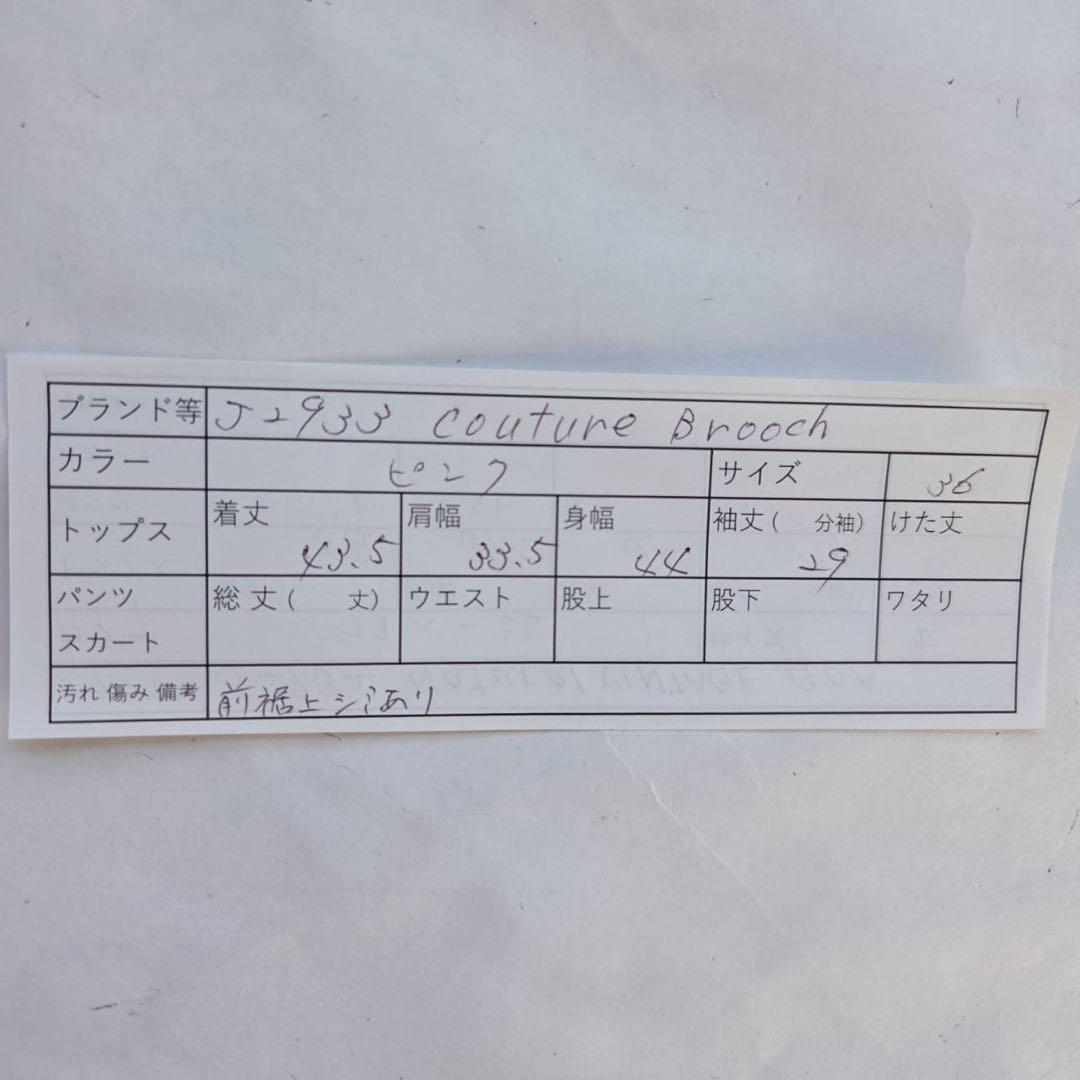 ブランド等 J2933 Couture Brooch
カラー ピンク サイズ 36
トップス 着丈 43.5 肩幅 33.5 身幅 44 袖丈( 分袖) 29 けた丈
パンツ スカート 総丈( 丈) ウエスト 股上 股下 ワタリ
汚れ 傷み 備考 前裾上シミあり